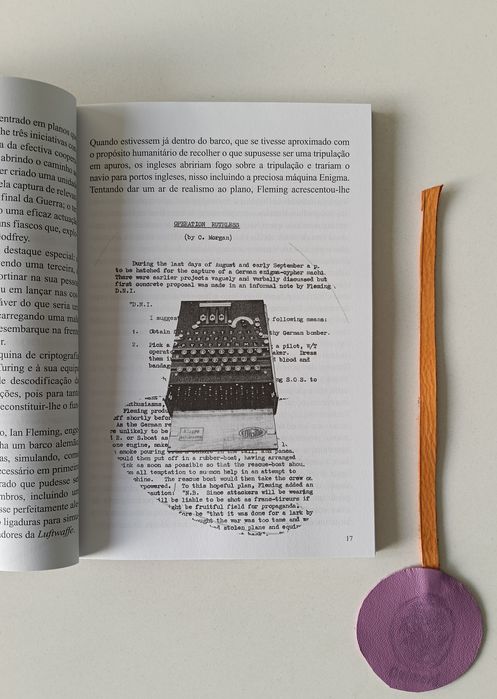 entrado em planos que
he três iniciativas con
a da efectiva coopera
abrindo o caminho a
er criado uma unidad
ela captura de relevan
final da Guerra; o se
o uma eficaz actuaçã
uns fiascos que, explo
odfrey.
destaque especial:
endo uma terceira,
ortinar na sua pesso
ou em lançar nas cos
áver do que seria un
carregando uma mal
esembarque na fren
r.
quina de criptografia
uring e à sua equipa
e descodificação d
ções, pois para tan
reconstituir-lhe o fun
o, Ian Fleming, enge
ha um barco alemão
as, simulando, com
ecessário em primeiro
rado que pudesse se
mbros, incluindo un
sse perfeitamente ale
o ligaduras para simu
adores da Luftwaffe.
Quando estivessem já dentro do barco, que se tivesse aproximado com
o propósito humanitário de recolher o que supusesse ser uma tripulação
em apuros, os ingleses abririam fogo sobre a tripulação e trariam o
navio para portos ingleses, nisso incluindo a preciosa máquina Enigma.
Tentando dar um ar de realismo ao plano, Fleming acrescentou-lhe
OPERATION RUTHLESS
(by C. Morgan)
During the last days of August and early September a p.
to be hatched for the capture of a German enigma-cypher machi
There were earlier projects vaguely and verbally discussed but
first concrete proposal was made in an informal note by Fleming
D.N.I.
"D.N.I.
I suggest following means:
1. Obtain thy German bomber.
2. Pick a a pilot, W/T
operat aker. Dress
them i blood and
bandag
g S.O.S. to
enthusiasm,
Fleming produ
off shortly before
As the German re
unlikely to be
R. or S.boat as
one engine, make
smoke pouring from panos.
ould then put off in a rubber-boat, having arranged
ink as soon as possible so that the rescue-boat shou
on all temptation to summon help in an attempt to
chine. The rescue boat would then take the crew on
powered. To this hopeful plan, Fleming added an
caution: "N.B. Since attackers will be wearing
ill be liable to be shot as franc-tireurs if
ght be fruitful field for propaganda.
ore be "that it was done for a lark by
ught the war was too tame and w
stolen plane and equip
17